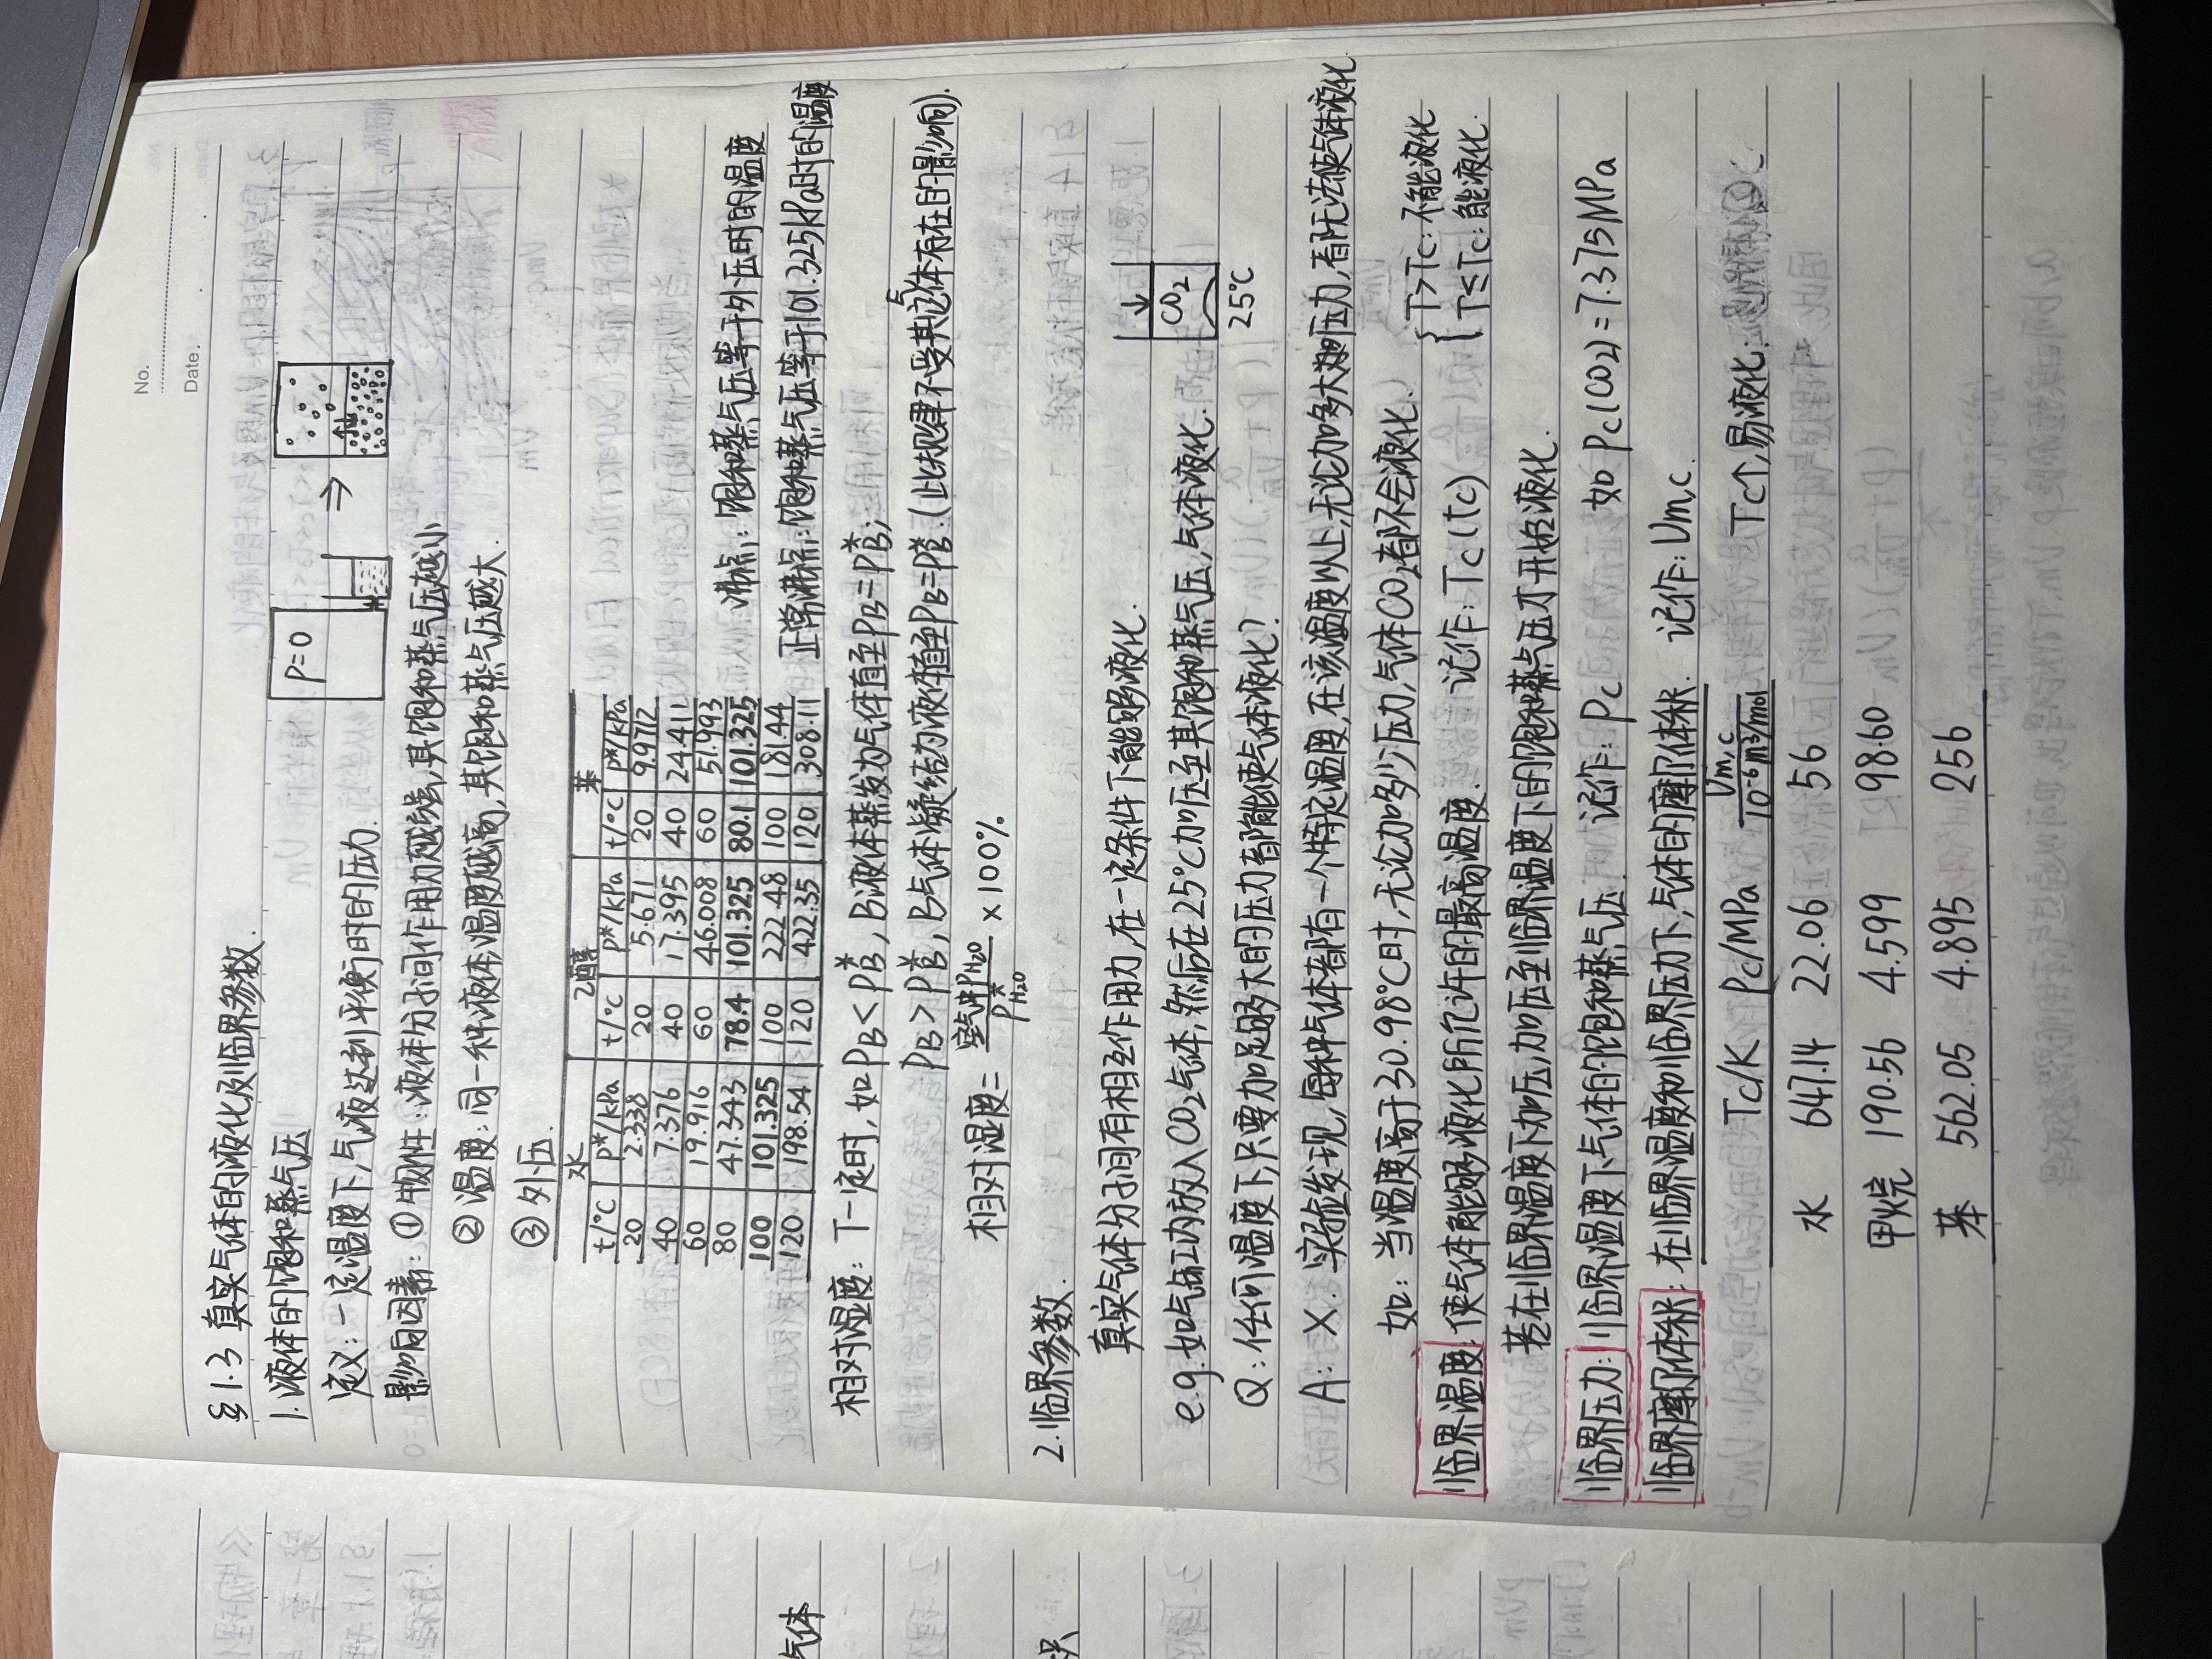 No.
Date.
§1.3 真实气体的液化及临界参数.
1.液体的饱和蒸气压
p=0
定义:一定温度下,气液达到平衡时的压力.
影响因素:①物性:液体分子间作用力越强,其饱和蒸气压越小
②温度:同一种液体,温度越高,其饱和蒸气压越大.
③外压.
水 乙醇 苯
t/°C p*/kPa t/°C p*/kPa t/°C p*/kPa
20 2.338 20 5.671 20 9.9712
40 7.376 40 17.395 40 24.411
60 19.916 60 46.008 60 51.993
80 47.343 78.4 101.325 80.1 101.325
100 101.325 100 222.48 100 181.44
120 198.54 120 422.35 120 308.11
沸点:饱和蒸气压等于外压时的温度
正常沸点:饱和蒸气压等于101.325kPa时的温度
相对湿度:T一定时,如PB<P*B,B液体蒸发为气体直至PB=P*B;
PB>P*B,B气体凝结为液体直至PB=P*B.(此规律不受其它气体存在的影响).
相对湿度=空气中PH2O/P*H2O×100%
2.临界参数.
真实气体分子间有相互作用力,在一定条件下能够液化.
e.g.如气缸内放入CO2气体,然后在25°C加压至其饱和蒸气压,气体液化.
CO2
25°C
Q:任何温度下,只要加足够大的压力都能使气体液化?
A:X.实验发现,每种气体都有一个特定温度,在该温度以上,无论加多大压力,都无法使气体液化.
如:当温度高于30.98°C时,无论加多少压力,气体CO2都不会液化.
临界温度:使气体能够液化所允许的最高温度. 记作:Tc(tc)
{T>Tc:不能液化
T≤Tc:能液化.
若在临界温度下加压,加压至临界温度下的饱和蒸气压才开始液化.
临界压力:临界温度下气体的饱和蒸气压. 记作:Pc 如Pc(CO2)=7.375MPa
临界摩尔体积:在临界温度和临界压力下,气体的摩尔体积. 记作:Vm,c.
Tc/K Pc/MPa Vm,c/10-6m3/mol
Tc↑,易液化;
水 647.14 22.06 56
甲烷 190.56 4.599 98.60
苯 562.05 4.895 256
气体